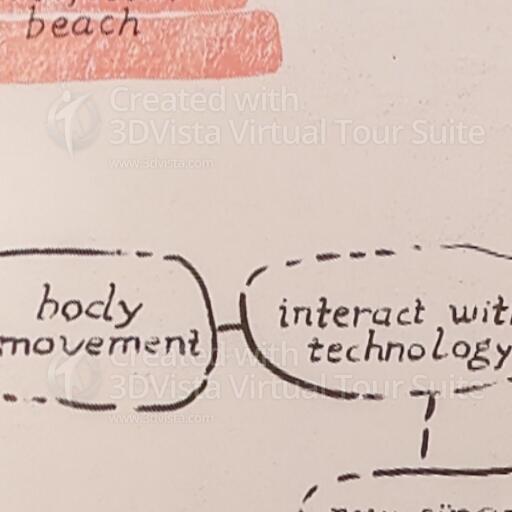 beach
Created with
3DVista Virtual Tour Suite
www.3dvista.com
body
movement
interact with
technology
Created with
3DVista Virtual Tour Suite
www.3dvista.com